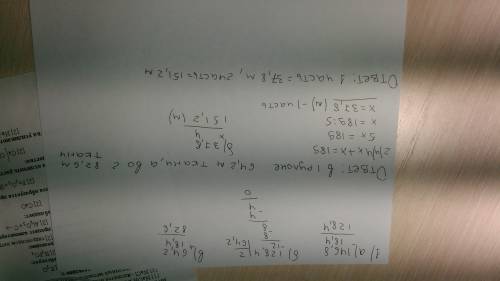 1) а) 146,8 б) 128,4 | 2 в) 64,2
18,4 12 64,2 18,4
128,4 8 82,6
8
4
4
0
Ответ: в 1 рулоне 64,2 м ткани, а во 2 82,6 м
ткани
2) а) 4x+x=189 б) 37,8
5x=189 x 4
x=189:5 151,2 (м)
x=37,8 (м) - 1 часть
Ответ: 1 часть = 37,8 м, 2 часть = 151,2 м